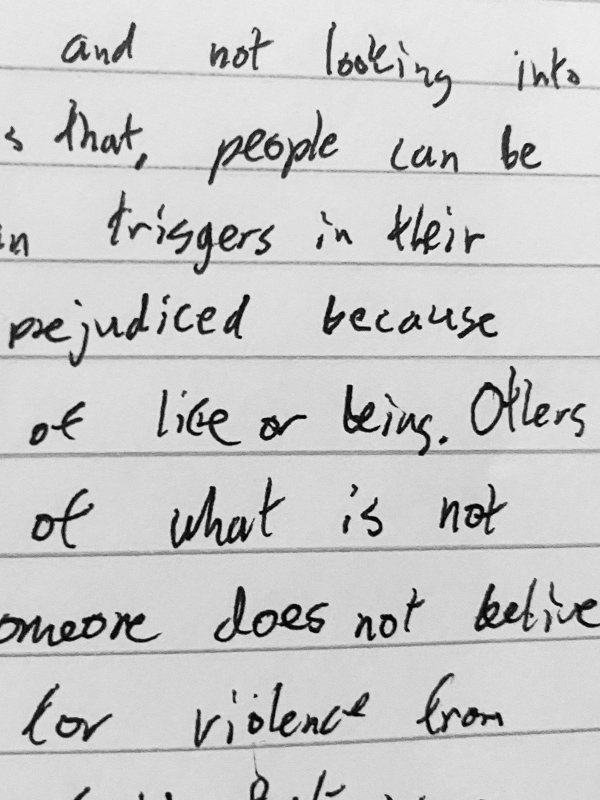 and not looking into
s that, people can be
in triggers in their
prejudiced because
of life or being. Others
of what is not
omeone does not belive
for violence from